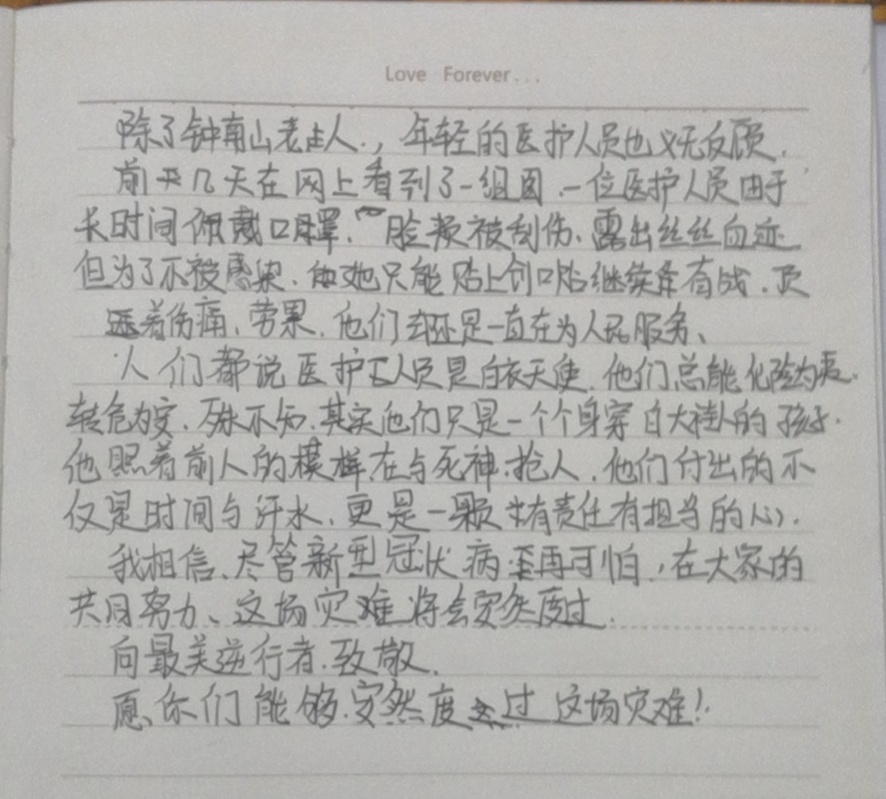 Love Forever...
除了钟南山老人，年轻的医护人员也义无反顾，
前几天在网上看到了一组图，一位医护人员由于
长时间佩戴口罩，脸颊被刮伤、露出丝丝血迹
但为了不被感染，她只能贴上创口贴继续奋战，
着伤痛、劳累，他们却还是一直在为人民服务、
人们都说医护人员是白衣天使，他们总能化险为夷、
转危为安，殊不知，其实他们只是一个个身穿白大褂的孩子，
他照着前人的模样在与死神抢人，他们付出的不
仅是时间与汗水，更是一颗有责任有担当的心。
我相信，尽管新型冠状病毒再可怕，在大家的
共同努力、这场灾难将会安然度过。
向最美逆行者致敬。
愿你们能够安然度过这场灾难！